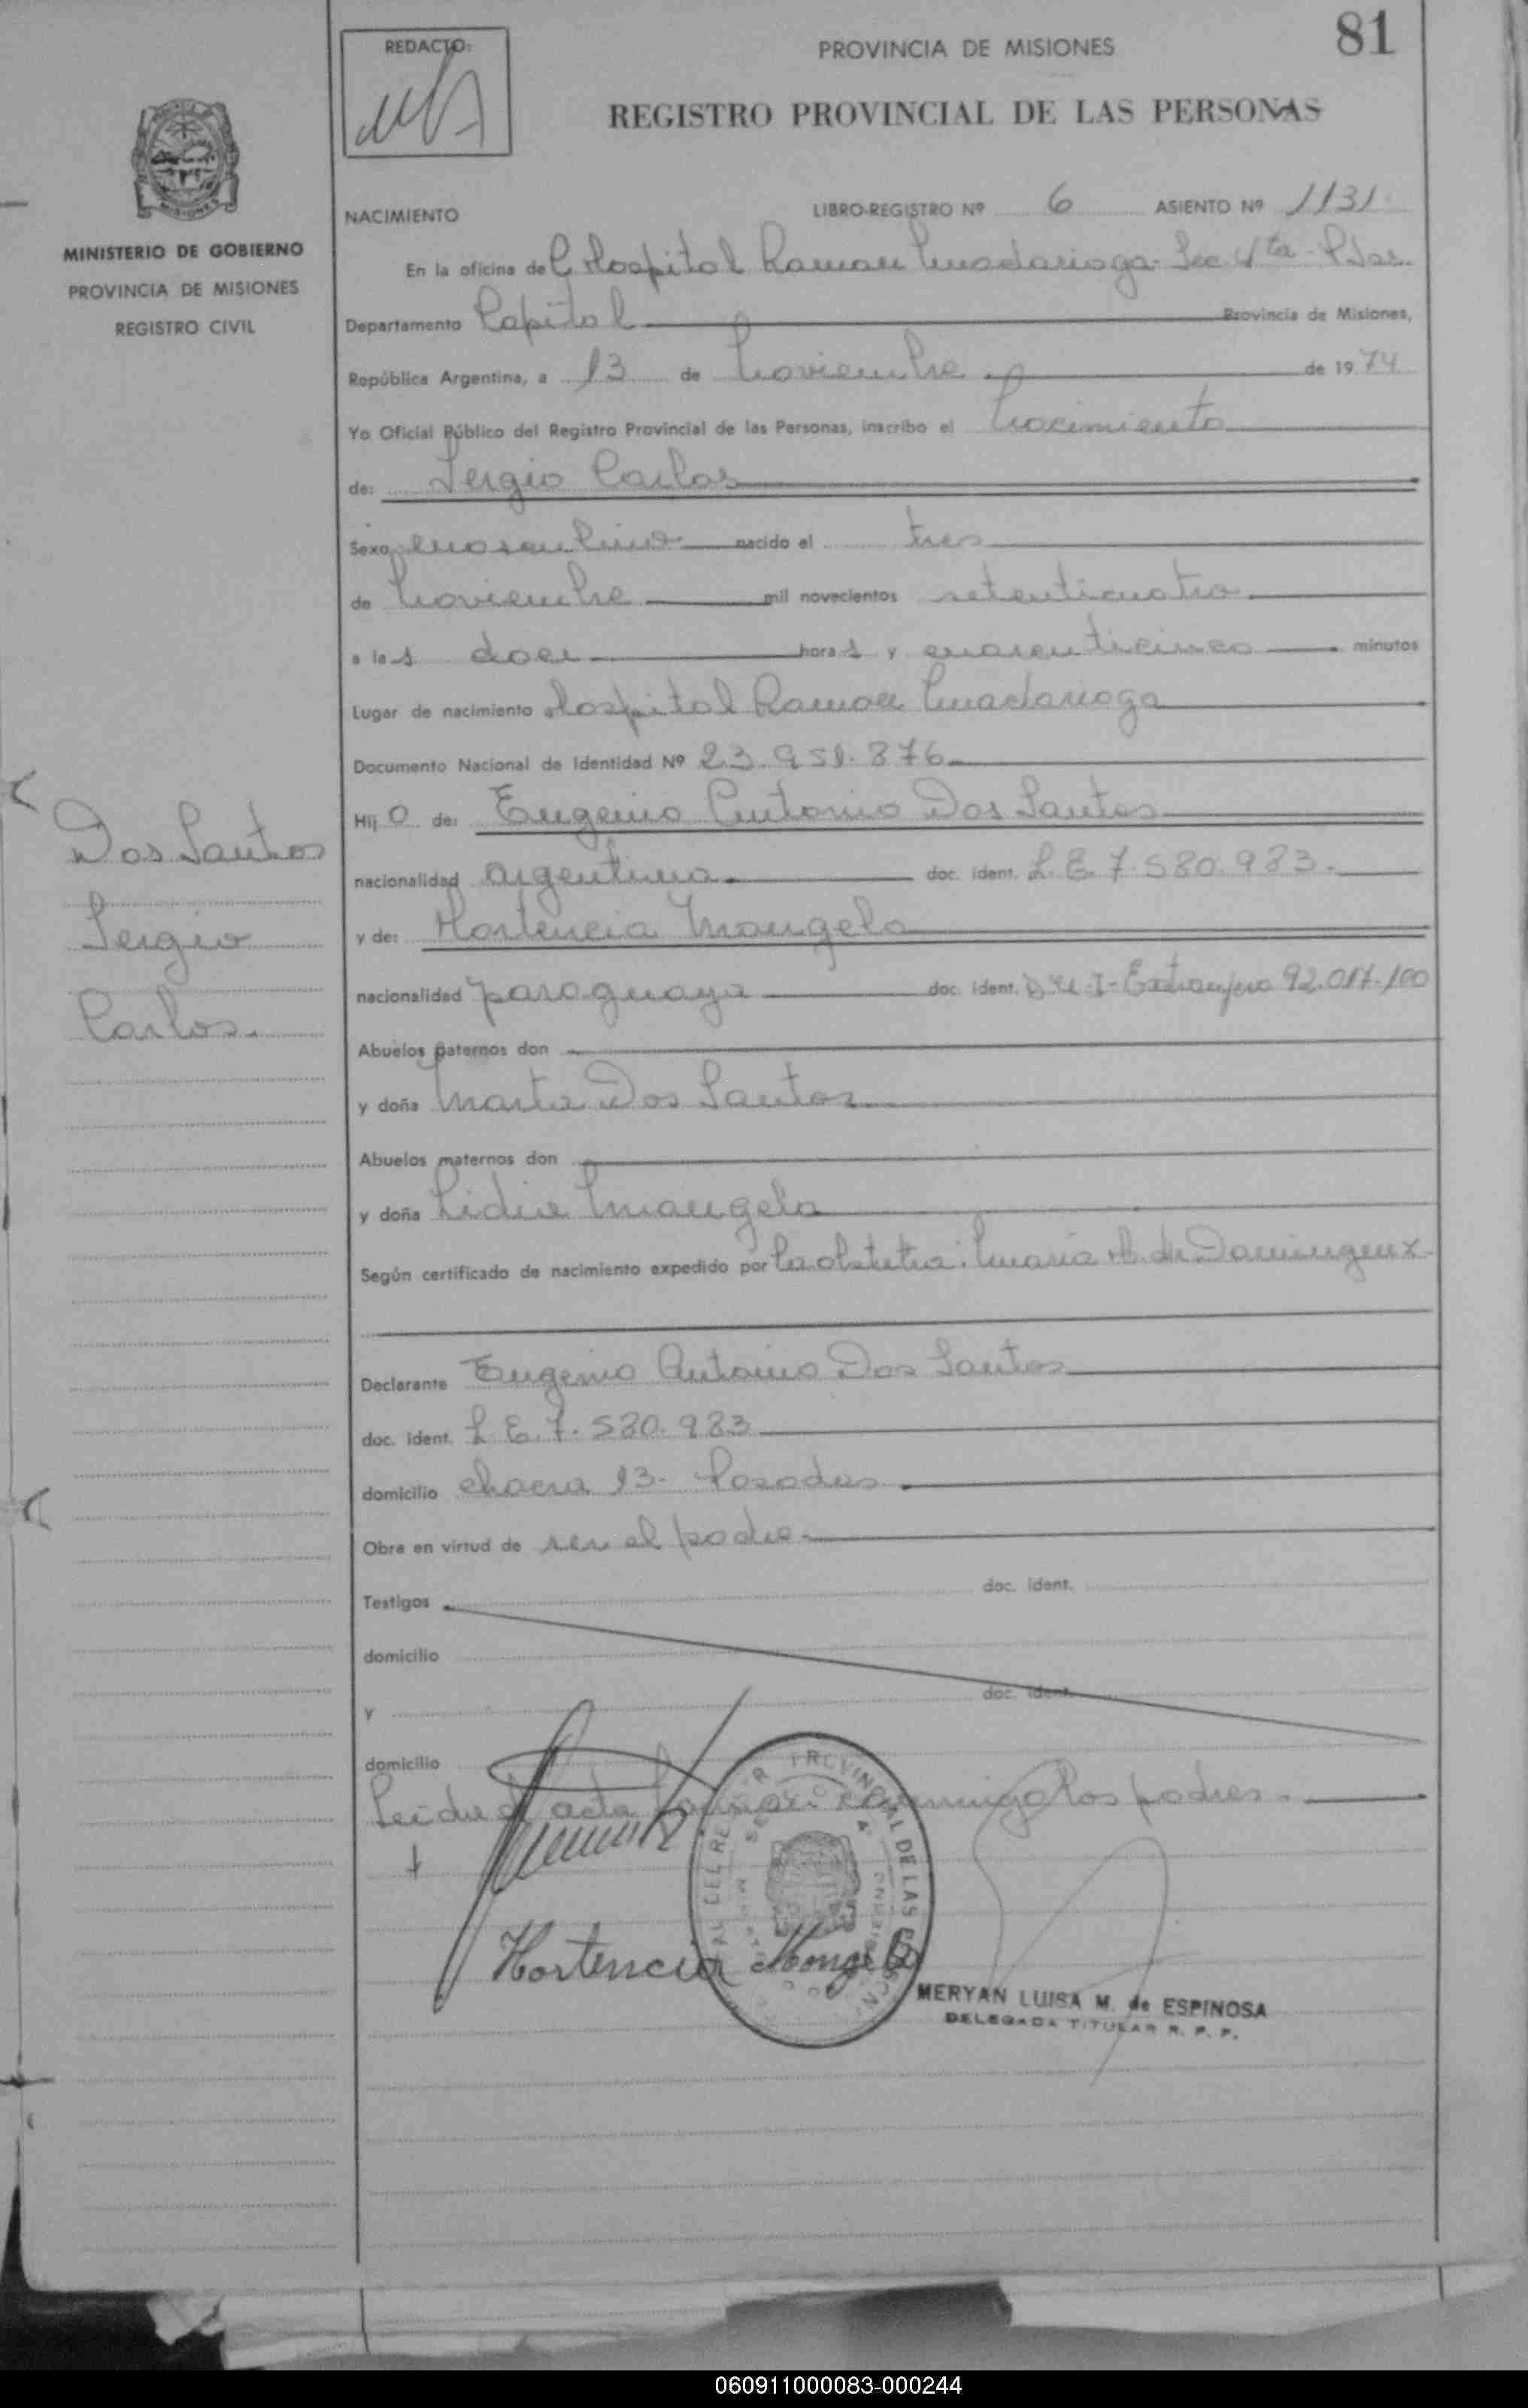 81
REDACTO:
PROVINCIA DE MISIONES
REGISTRO PROVINCIAL DE LAS PERSONAS
MISIONES
MINISTERIO DE GOBIERNO
PROVINCIA DE MISIONES
REGISTRO CIVIL
NACIMIENTO LIBRO-REGISTRO Nº 6 ASIENTO Nº 1131
En la oficina de Hospital Ramon Madariaga - Sec 4ta - Pdas.
Departamento Capital Provincia de Misiones,
República Argentina, a 13 de Noviembre de 1974
Yo Oficial Público del Registro Provincial de las Personas, inscribo el Nacimiento
de: Sergio Carlos
Sexo masculino nacido el tres
de Noviembre mil novecientos setenticuatro
a las doce horas y cuarenticinco minutos
Lugar de nacimiento Hospital Ramon Madariaga
Documento Nacional de Identidad Nº 23.951.876
Hijo de: Eugenio Antonio Dos Santos
Dos Santos
Sergio
Carlos.
nacionalidad argentina doc. ident. L.E. 7.580.983.
y de: Hortencia Mongelo
nacionalidad paraguaya doc. ident. D.N.I-Extranjero 92.017.100
Abuelos paternos don
y doña Marta Dos Santos
Abuelos maternos don
y doña Lidia Mongelo
Según certificado de nacimiento expedido por la obstetra: Maria H. de Dominguez
Declarante Eugenio Antonio Dos Santos
doc. ident. L.E. 7.580.983
domicilio chacra 13- Posadas
Obra en virtud de ser el padre
Testigos doc. ident.
domicilio
y doc. ident.
domicilio
Leida el acta firman conmigo los padres.
Hortencia Mongelo
MERYAN LUISA M. de ESPINOSA
DELEGADA TITULAR R. P. P.
060911000083-000244